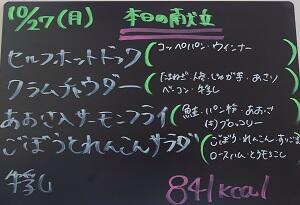 10/27(月) 本日の献立
セルフホットドック(コッペパン・ウインナー
クラムチャウダー(たまねぎ・人参・じゃが芋・あさり
ベーコン・牛乳
あおさ入サーモンフライ(鮭・パン粉・あおさ
付)ブロッコリー
ごぼうとれんこんサラダ(ごぼう・れんこん・
ロースハム・とうもろこし
牛乳 841kcal